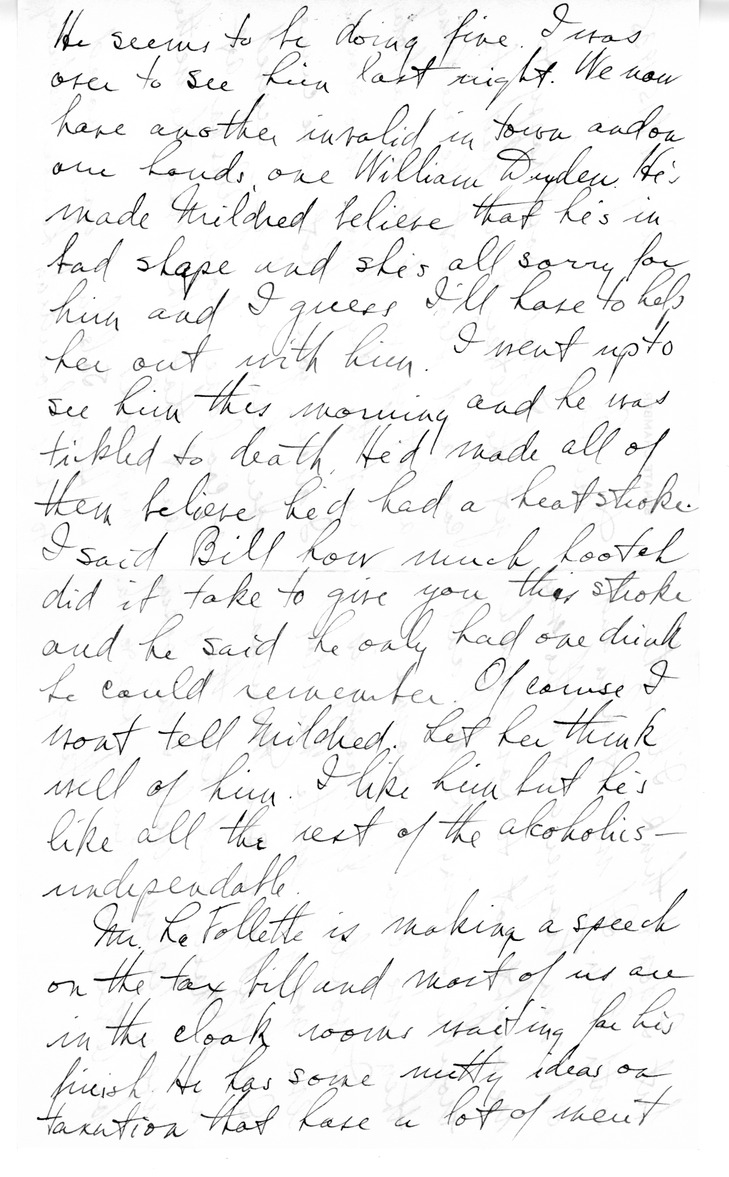 He seems to be doing fine. I was
over to see him last night. We now
have another invalid in town and on
our hands, one William Dryden. He's
made Mildred believe that he's in
bad shape and she's all sorry for
him and I guess I'll have to help
her out with him. I went up to
see him this morning and he was
tickled to death. He'd made all of
them believe he'd had a heat stroke.
I said Bill how much hootch
did it take to give you this stroke
and he said he only had one drink
he could remember. Of course I
wont tell Mildred. Let her think
well of him. I like him but he's
like all the rest of the alcoholics—
undependable.
Mr. La Follette is making a speech
on the tax bill and most of us are
in the cloak rooms waiting for his
finish. He has some nutty ideas on
taxation that have a lot of merit